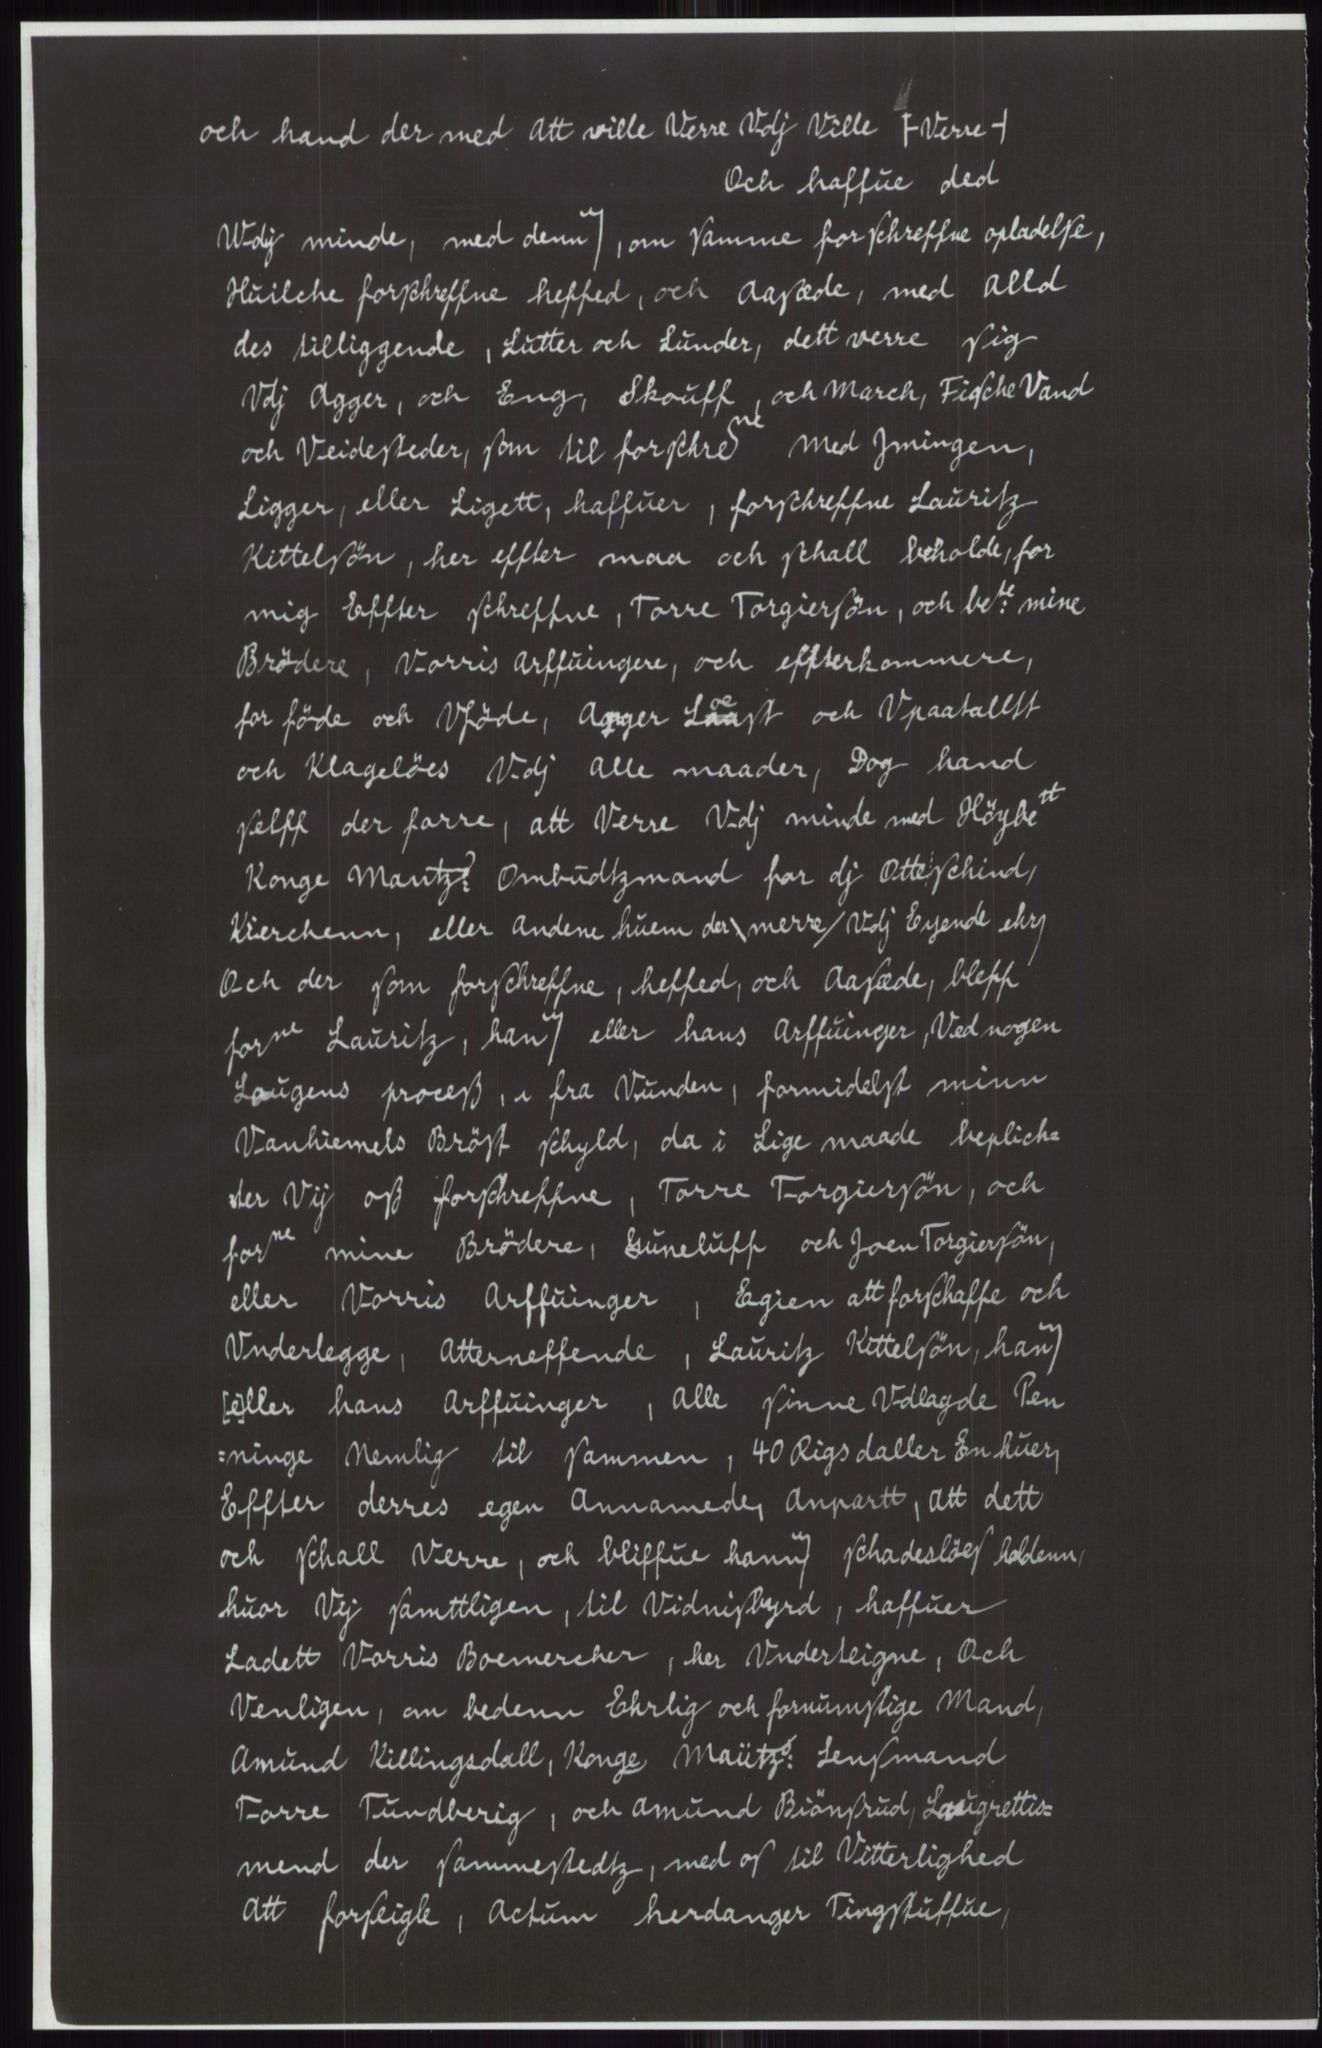 och hand der med att ville Verre Vdj Ville [-Verre-]
Och haffue ded
Wdj minde, med dennɉ, om samme forschreffne opladelse,
Huilche forschreffne heffed, och Aasæde, med alld
des tilliggende, Lutter och Lunder, dett verre sig
Vdj Agger, och Eng, Skouff, och March, Fische Vand
och Veidesteder, som til forschrene med Jmingen,
Ligger, eller Ligett, haffuer, forschreffne Lauritz
Kittelsön, her effter maa och schall beholde, for
mig Effter schreffne, Torre Torgiersön, och bete: mine
Brödere, Vorris Arffuingere, och effterkommere,
for föde och Vföde, Agger Loest och Vpaatallt
och Klagelöes Vdj alle maader, Dog hand
selff der forre, att Verre Vdj minde med Höybett
Konge Mantz: Ombudtzmand for dj Otteschind,
Kierchenn, eller Andene huem der \merre/ Vdj Eyende ehr,
Och der som forschreffne, heffed, och Aasæde, bleff
forne Lauritz, hanɉ eller hans Arffuinger, Ved nogen
Laugens proceß, i fra Vunden, formidelst minn
Vanhiemels Bröst schyld, da i Lige maade beplich=
ter Vij oß forschreffne, Torre Torgiersön, och
forne mine Brödere, Guneluff och Joen Torgiersön,
eller Vorris Arffuinger, Egien att forschaffe och
Vnderlegge, Atterneffende, Lauritz Kittelsön, hanɉ
[e]ller hans Arffuinger, Alle sinne Vdlagde Pen
=ninge Nemlig til sammen, 40 Rigsdaller En huer,
Effter derres egen Annamede, Anpartt, att dett
och schall Verre, och bliffue hannɉ schadeslöes holdenn,
huor Vij samttligen, til Vidnisbyrd, haffuer
Ladett Vorris Boemercher, her Vnderteigne, Och
Venligen, om bedenn Ehrlig och fornumstige Mand,
Amund Killingsdall, Konge Maütz: Lensmand
Torre Tundberig, och Amund Biönsrud, Laugrettis=
mend der sammestedtz, med os til Vitterlighed
Att forseigle, Actum herdanger Tingstuffue,